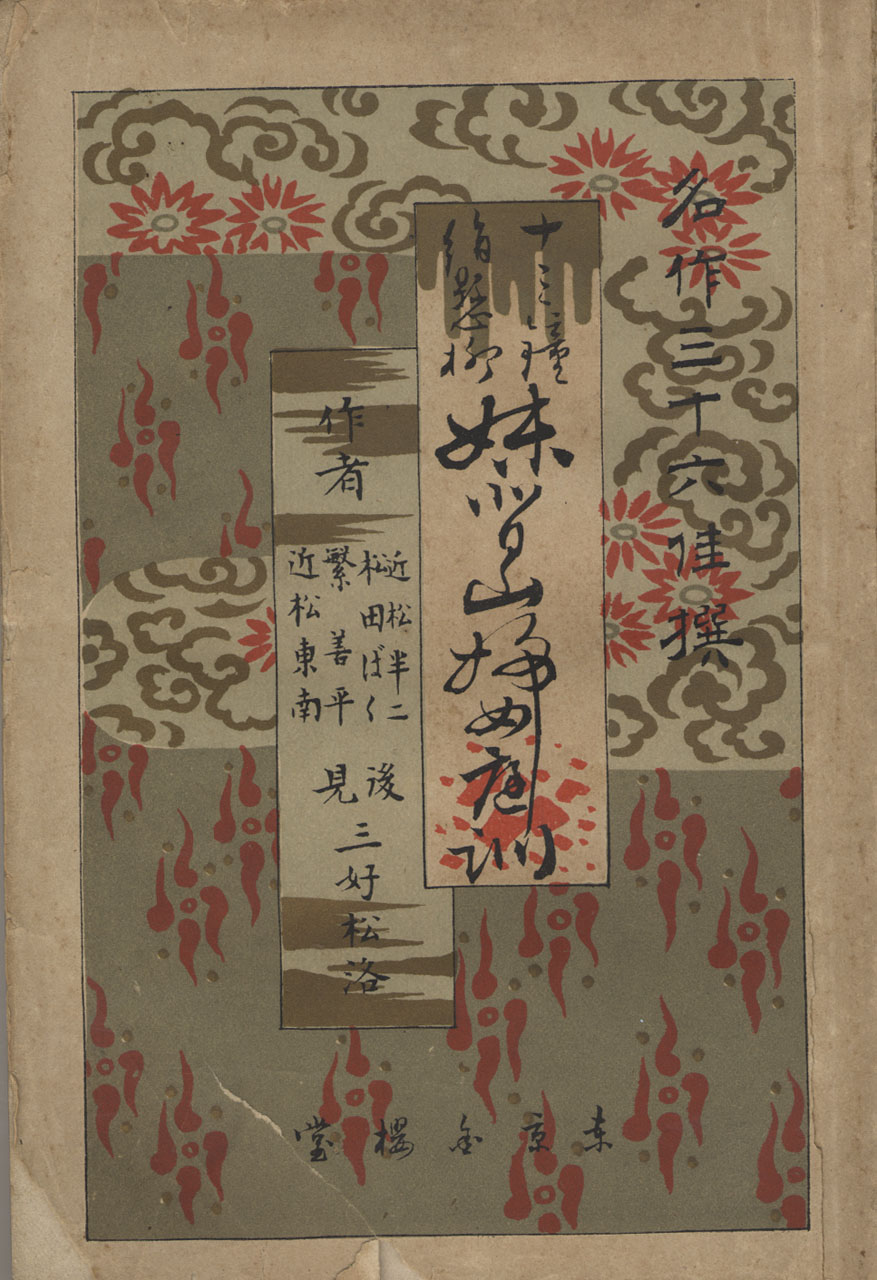 名作三十六佳撰
十三鐘
絹懸柳
妹背山婦女庭訓
作者
近松半二
松田ばく
繁善平
近松東南
後見
三好松洛
東京金櫻堂